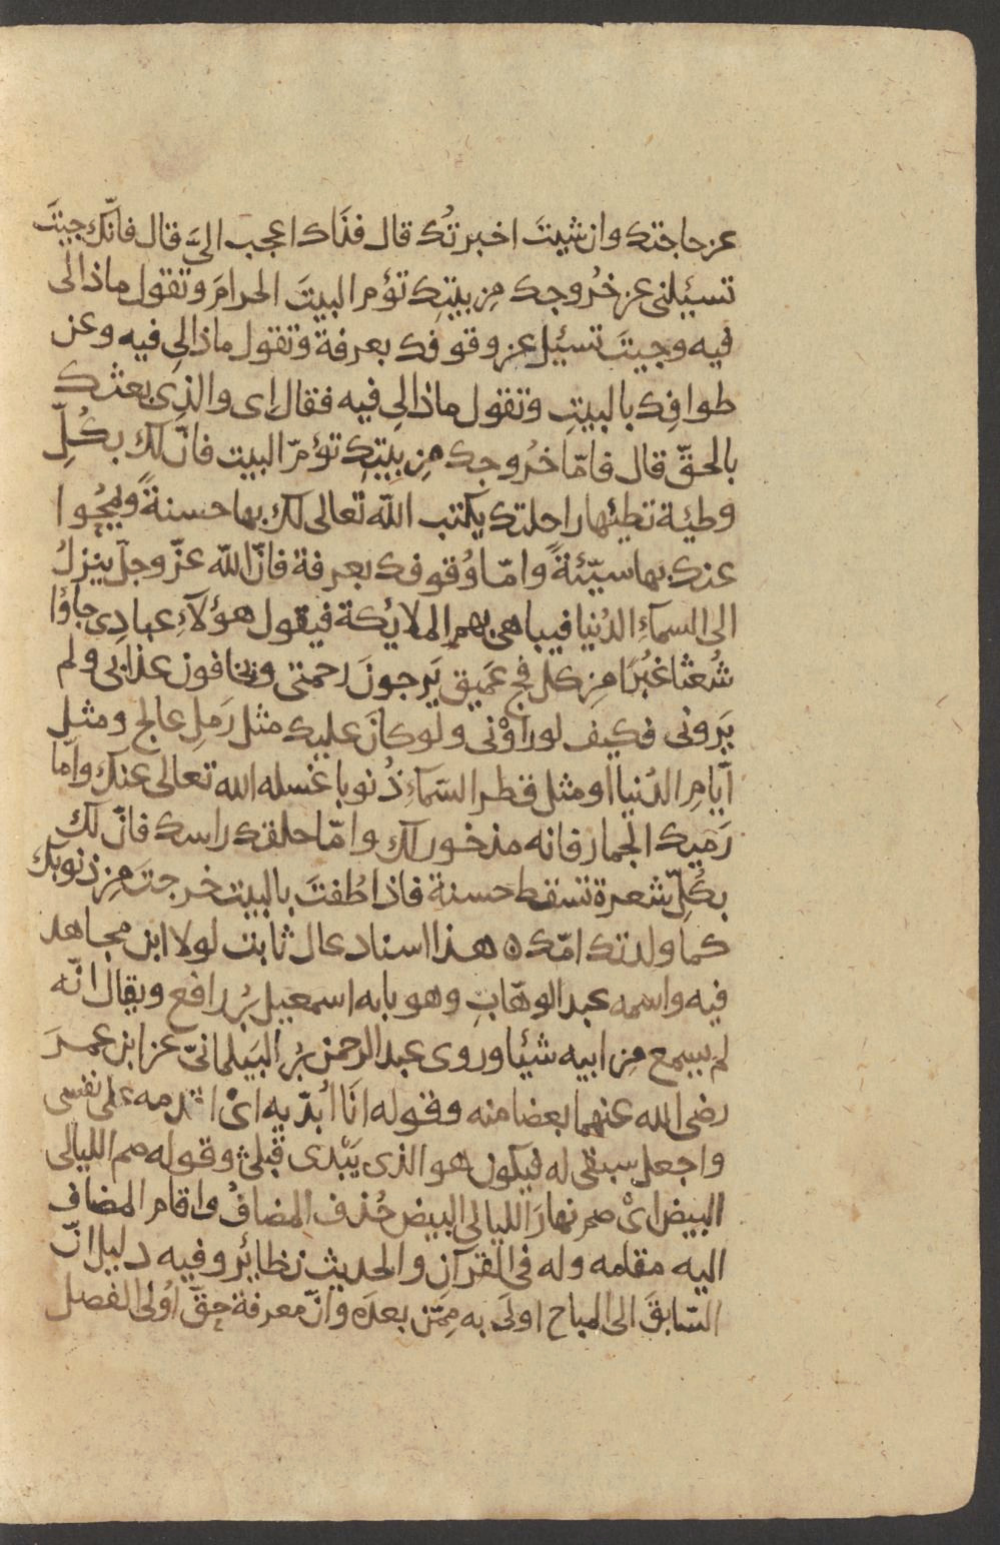 عن حاجتك وان شيتَ اخبرتُك قال فذَاك اعجب اليَّ قال فانّك جيتَ
تسئلنى عن خُروجك مِن بيتِك تؤم البيتَ الحرامَ وتقول ماذا لى
فيه وجيتَ تسئِل عن وقوفك بعرفة وتقول ماذا لِى فيه وعن
طوافِك بالبيتِ وتقول ماذا لِى فيه فقال اى والذِى بعثك
بالحقّ قال فامّا خرُوجك مِن بيتِك تؤمّ البيت فانّ لك بكُلِّ
وطيئة تطيئها راحلتك يكتب الله تعالى لك بها حسنةً ويمحُوا
عنك بها سيّئةً وامّا وُقوفك بعرفة فانّ الله عزّ وجلّ ينزلُ
الى السمآءِ الدُنيا فيباهى بهم الملائكة فيقول هؤلآءِ عبادِى جاؤُا
شُعثا غبُرًا مِن كل فج عَميق يَرجونَ رحمتى ويخافون عذابى ولم
يَرونى فكيف لو رَاوْنى ولو كانَ عليك مثل رَملِ عالج ومثل
اَيّامِ الدُنيا او مثل قطر السَمآءِ ذُنوبا غسله الله تعالى عنك وامّا
رَميك الجمار فانه مذخور لك وامّا حلقك راسك فانّ لك
بكُلِّ شعرة تسقط حسنة فاذا طُفتَ بالبيت خرجتَ مِن ذنوبك
كما ولدتك امّك ه هذا اسناد عال ثابت لولا ابن مجاهد
فيه واسمه عبد الوهّابِ وهو بابه اسمعيل بْن رافع ويقال انّه
لم يسمع مِن ابيه شيئا وروى عبد الرحمن بْن البَيلمانىّ عن ابن عمرَ
رضى الله عنهما بعضا منه وقوله انَا اُبدّيه اىْ اقدمه على نفسى
واجعل سبقى له فيكون هو الذى يَبْدى قبلىْ وقوله صم الليالى
البيض اىْ صم نهارَ الليالى البيض حُذف المضافُ واقام المضاف
اليه مقامه وله فى القرآن والحديث نظائر وفيه دليل انّ
السّابقَ الى المباح اولَى به مِمّن بعدَه وانّ معرفة حقّ اوُلى الفصل